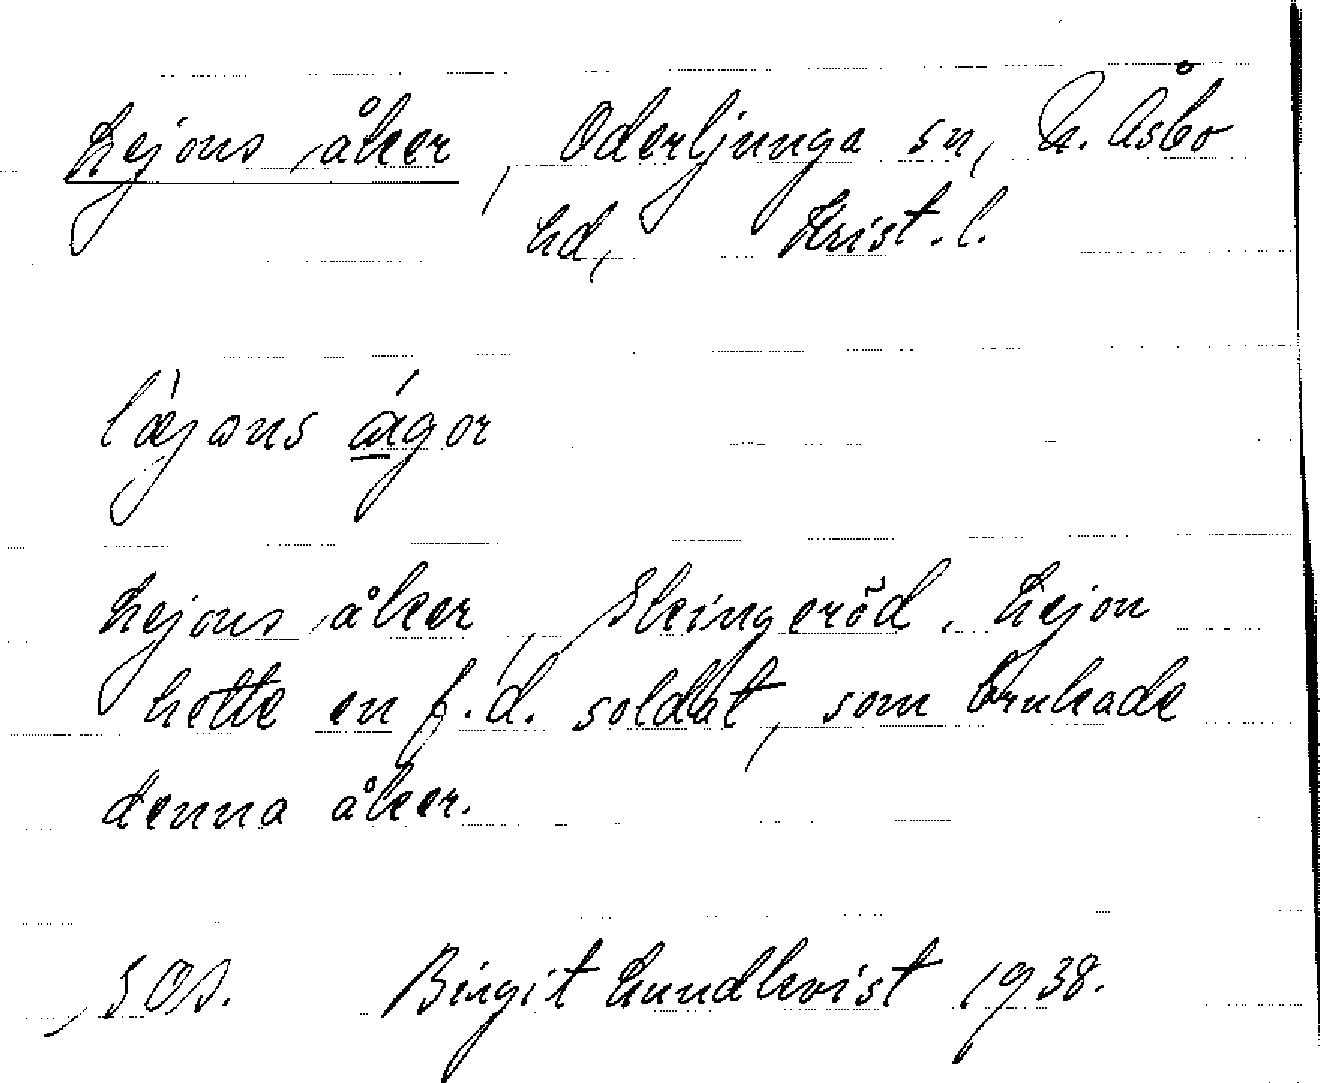 Lejons åker, Oderljunga sn, N. Åsbo
hd, Krist. l.
læjons ågor
Lejons åker, Skingeröd. Lejon
hette en f.d. soldat, som brukade
denna åker.
SOA. Birgit Lundkvist 1938.